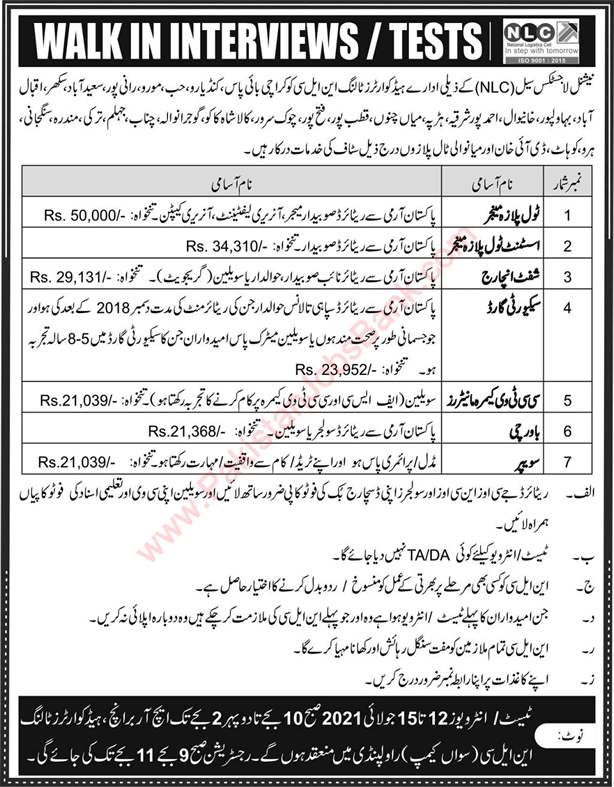 WALK IN INTERVIEWS / TESTS
NLC
National Logistics Cell
In step with tomorrow
ISO 9001 : 2015
نیشنل لاجسٹکس سیل (NLC) کے ذیلی ادارے ہیڈ کوارٹرز ٹالنگ این ایل سی کو کراچی بائی پاس، کنڈیارو، حب، مورو، رانی پور، سعید آباد، سکھر، اقبال
آباد، بہاولپور، خانیوال، احمد پور شرقیہ، ہڑپہ، میاں چنوں، قطب پور، فتح پور، چوک سرور، کالا شاہ کاکو، گوجرانوالہ، چناب، جہلم، ترکی، مندرہ، سنگجانی،
ہرو، کوہاٹ، ڈی آئی خان اور میانوالی ٹال پلازوں درج ذیل سٹاف کی خدمات درکار ہیں۔
نمبر شمار نام آسامی نام آسامی
1 ٹول پلازہ منیجر پاکستان آرمی سے ریٹائرڈ صوبیدار میجر، آنریری لیفٹیننٹ، آنریری کیپٹن۔ تنخواہ: Rs. 50,000/-
2 اسسٹنٹ ٹول پلازہ منیجر پاکستان آرمی سے ریٹائرڈ صوبیدار۔ تنخواہ: Rs. 34,310/-
3 شفٹ انچارج پاکستان آرمی سے ریٹائرڈ نائب صوبیدار، حوالدار یا سویلین (گریجویٹ)۔ تنخواہ: Rs. 29,131/-
4 سیکیورٹی گارڈ پاکستان آرمی سے ریٹائرڈ سپاہی تا لانس حوالدار جن کی ریٹائرمنٹ کی مدت دسمبر 2018 کے بعد کی ہو اور
جو جسمانی طور پر صحت مند ہوں یا سویلین میٹرک پاس امیدواران جن کا سیکیورٹی گارڈ میں 5-8 سالہ تجربہ
ہو۔ تنخواہ: Rs. 23,952/-
5 سی سی ٹی وی کیمرہ مانیٹرز سویلین (ایف ایس سی اور سی سی ٹی وی کیمرہ پر کام کرنے کا تجربہ رکھتا ہو)۔ تنخواہ: Rs.21,039/-
6 باورچی پاکستان آرمی سے ریٹائرڈ سولجر یا سویلین۔ تنخواہ: Rs.21,368/-
7 سویپر مڈل / پرائمری پاس ہو اور اپنے ٹریڈ / کام سے واقفیت / مہارت رکھتا ہو۔ تنخواہ: Rs.21,039/-
الف۔ ریٹائرڈ جے سی اوز این سی اوز اور سولجرز اپنی ڈسچارج بک کی فوٹو کاپی ضرور ساتھ لائیں اور سویلین اپنی سی وی اور تعلیمی اسناد کی فوٹو کاپیاں
ہمراہ لائیں۔
ب۔ ٹیسٹ / انٹرویو کیلئے کوئی TA/DA نہیں دیا جائے گا۔
ج۔ این ایل سی کو کسی بھی مرحلے پر بھرتی کے عمل کو منسوخ / ردوبدل کرنے کا اختیار حاصل ہے۔
د۔ جن امیدواران کا پہلے ٹیسٹ / انٹرویو ہوا ہے وہ اور جو پہلے این ایل سی کی ملازمت کر چکے ہیں وہ دوبارہ اپلائی نہ کریں۔
ر۔ این ایل سی تمام ملازمین کو مفت سنگل رہائش اور کھانا مہیا کرے گا۔
ز۔ اپنے کاغذات پر اپنا رابطہ نمبر ضرور درج کریں۔
نوٹ: ٹیسٹ / انٹرویوز 12 تا 15 جولائی 2021 صبح 10 بجے تا دوپہر 2 بجے تک ایچ آر برانچ، ہیڈ کوارٹرز ٹالنگ
این ایل سی (سواں کیمپ) راولپنڈی میں منعقد ہوں گے۔ رجسٹریشن صبح 9 بجے تا 11 بجے تک کی جائے گی۔
www.PakistanJobsBank.com